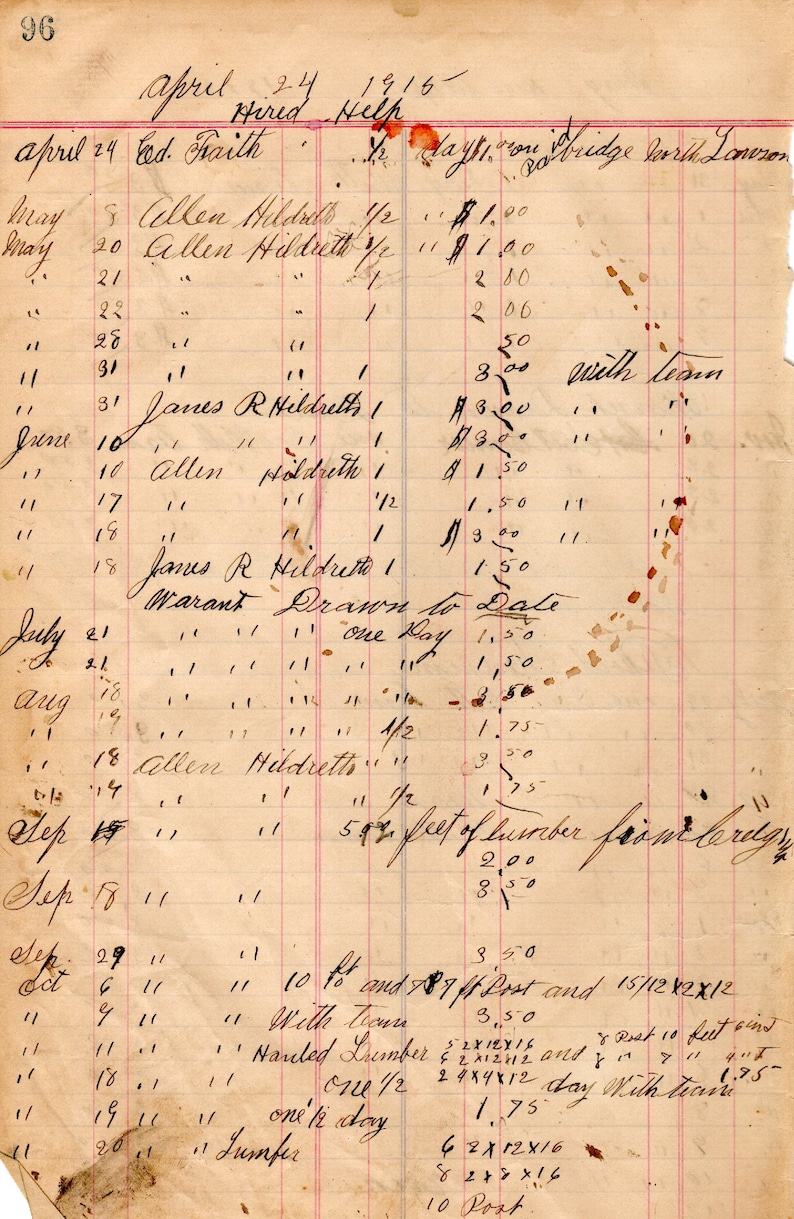 96
April 24 1915
Hired Help
April 24 Ed. Faith " 1/2 day $1.00 on bridge North Lawson
Paid
May 8 Allen Hildreth 1/2 " $1.00
May 20 Allen Hildreth 1/2 " $1.00
" 21 " " 1 2 00
" 22 " " 1 2 00
" 28 " " 50
" 31 " " 1 3.00 With team
" 31 James R Hildreth 1 $3.00 " "
June 10 " " " 1 $3.00 " "
" 10 Allen Hildreth 1 $1.50
" 17 " " 1/2 1.50 " "
" 18 " " 1 $3.00 " "
" 18 James R Hildreth 1 1.50
Warant Drawn to Date
July 21 " " " one Day 1.50
" 21 " " " " " 1.50
Aug 18 " " " " " 3 50
" 19 " " " " 1/2 1.75
" 18 Allen Hildreth " " 3 50
" 19 " " " 1/2 1 75
Sep 15 " " feet of lumber from
2 00
Sep 18 " " 3 50
Sep. 29 " " 3 50
Oct 6 " " 10 ft and ft Post and 15/12x2x12
" 9 " " With team 3.50
" 11 " " Hauled Lumber 5 2x12x16
6 2x12x12 and 8 Post 10 feet
8 " 8 "
2 4x4x12
" 18 " " one 1/2 day With team 1.75
" 19 " " one 1/2 day 1.75
" 20 " " Lumber 6 2x12x16
8 2x8x16
10 Post